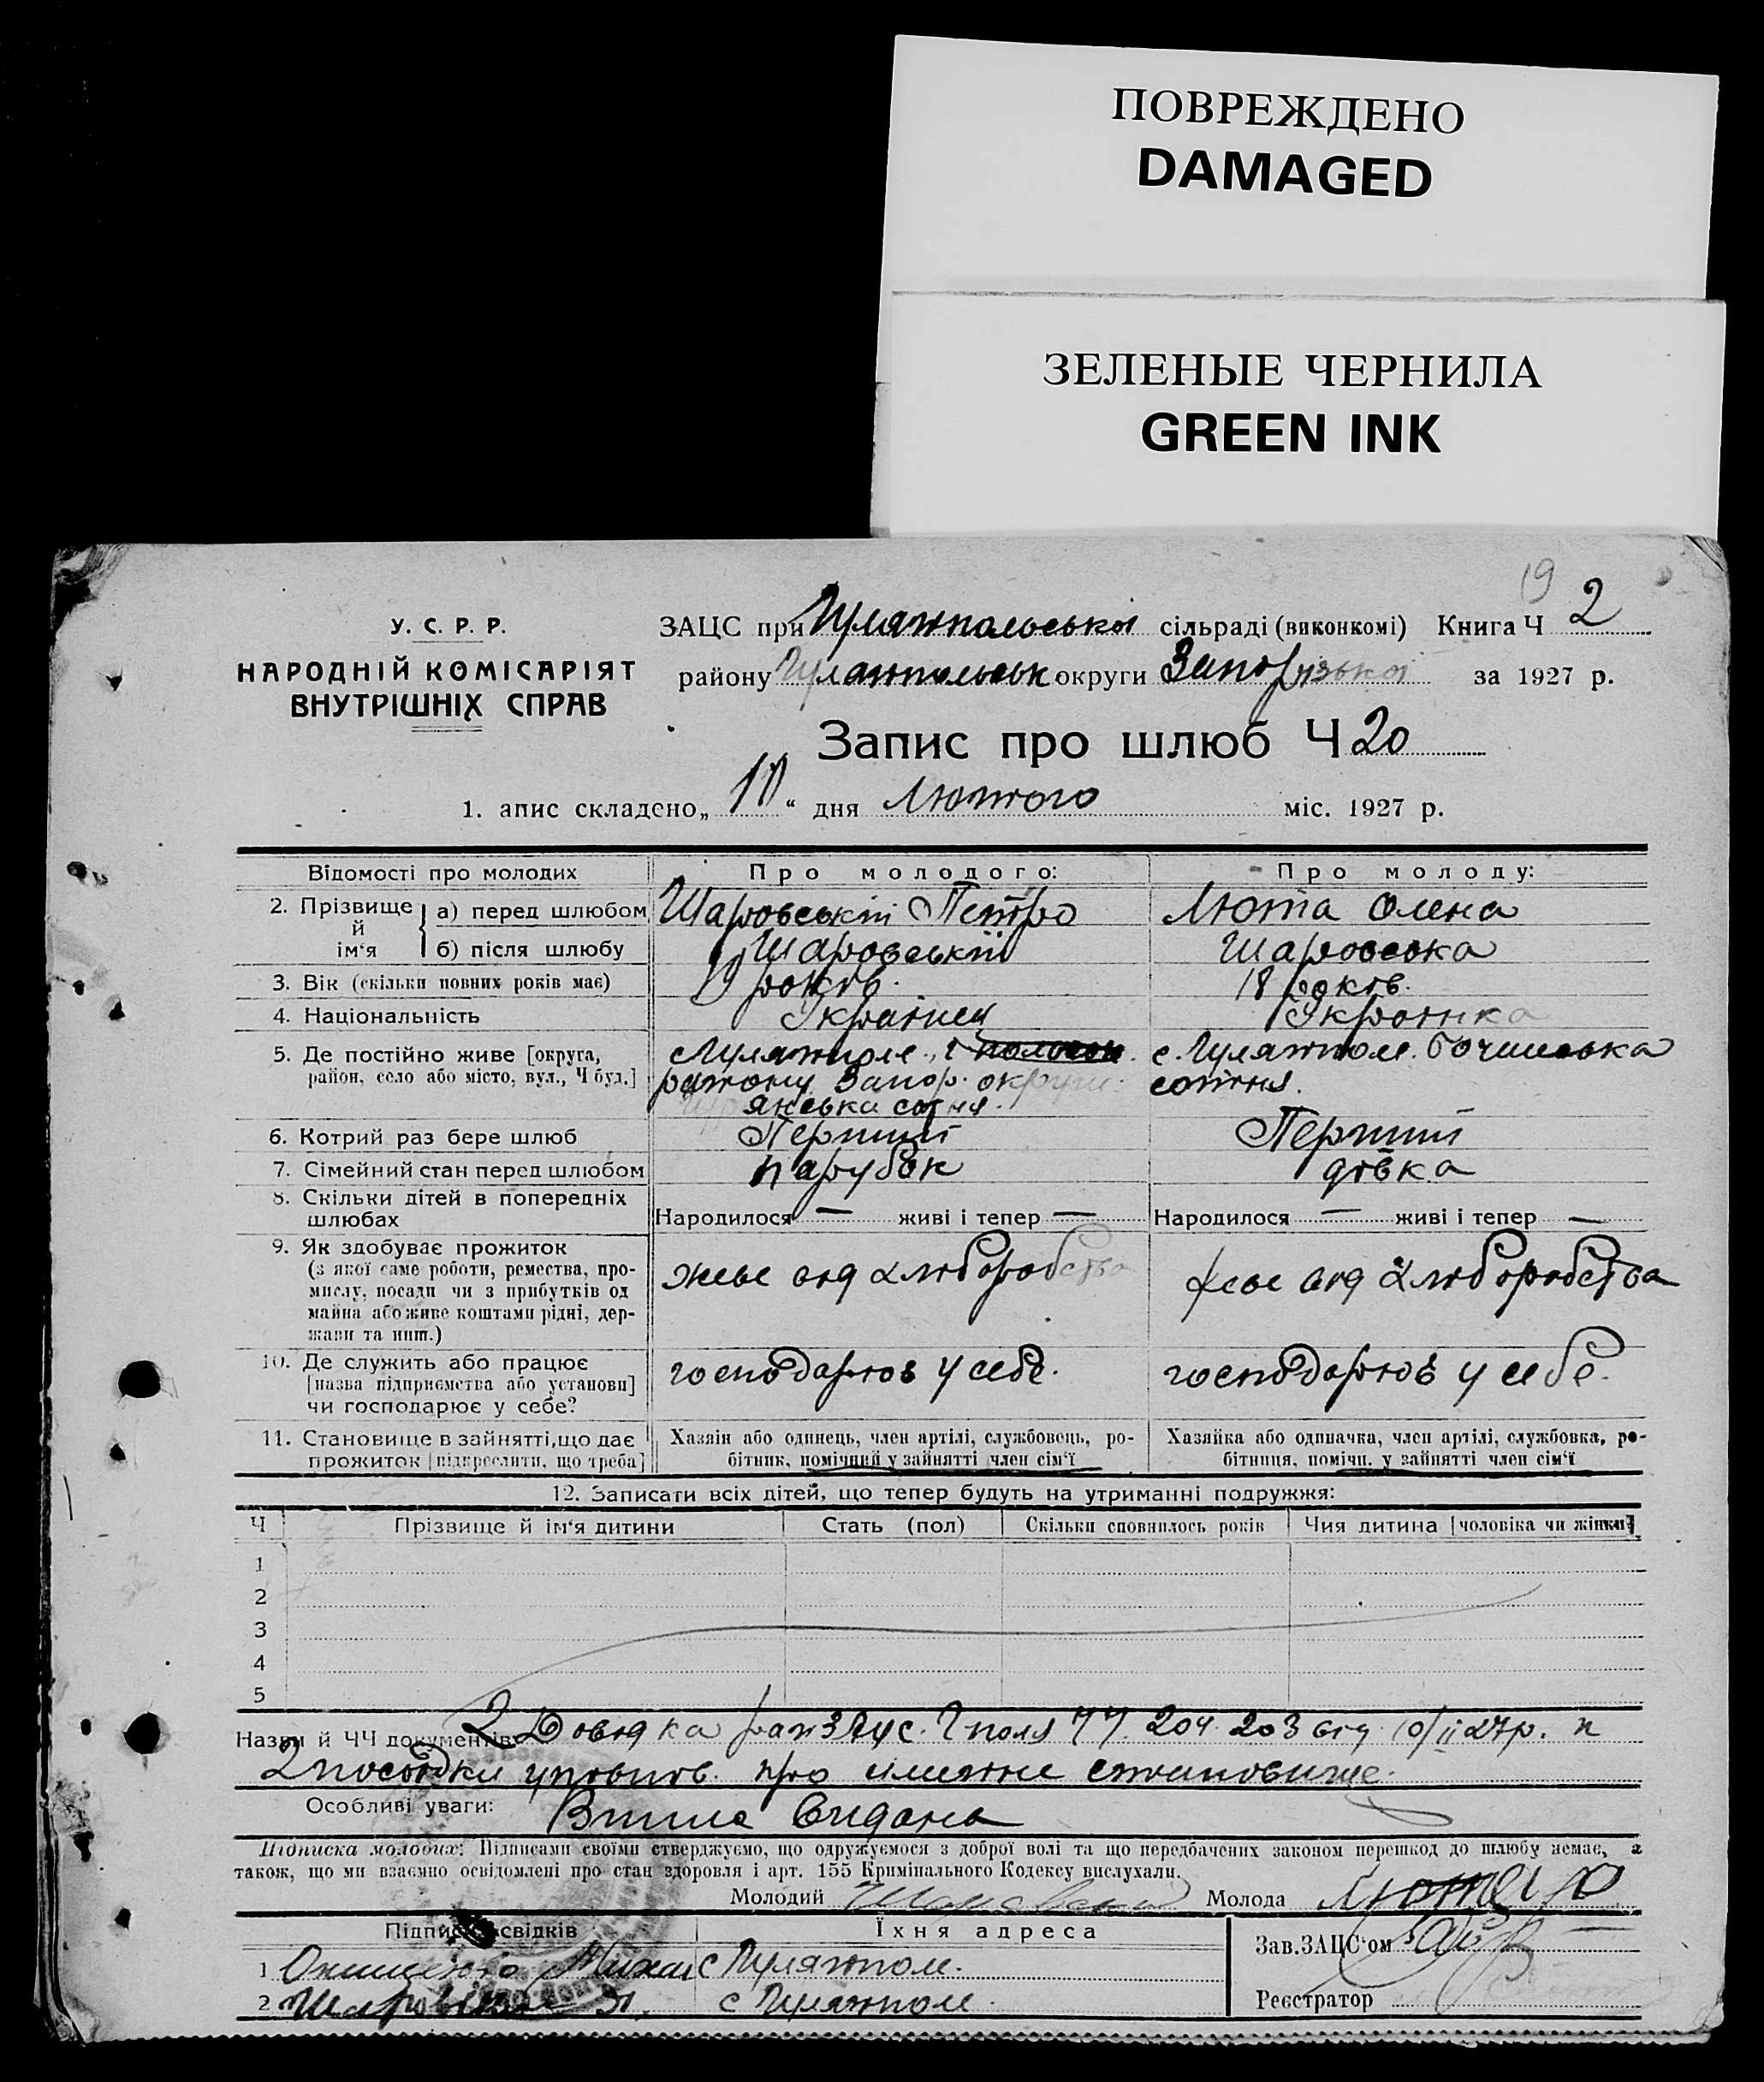 ПОВРЕЖДЕНО
DAMAGED
ЗЕЛЕНЫЕ ЧЕРНИЛА
GREEN INK
19
У. С. Р. Р.
НАРОДНІЙ КОМІСАРІЯТ
ВНУТРІШНІХ СПРАВ
ЗАЦС при Гуляйпольської сільраді (виконкомі) Книга Ч 2
району Гуляйпольськ округи Запорізької за 1927 р.
Запис про шлюб Ч 20
1. апис складено „10“ дня Лютого міс. 1927 р.
Відомості про молодих Про молодого: Про молоду:
2. Прізвище й ім‘я а) перед шлюбом Шаровський Петро Люта Олена
б) після шлюбу Шаровський Шаровська
3. Вік (скільки повних років має) 19 років. 18 років.
4. Національність Українец Українка
5. Де постійно живе [округа, район, село або місто, вул., Ч буд.] с Гуляйполе, с Гуляйполе. Бочанська
району Запор. округи сотня.
янська сотня.
6. Котрий раз бере шлюб Перший Перший
7. Сімейний стан перед шлюбом парубок дівка
8. Скільки дітей в попередніх шлюбах Народилося — живі і тепер — Народилося — живі і тепер —
9. Як здобуває прожиток
(з якої саме роботи, ремества, промислу, посади чи з прибутків од майна або живе коштами рідні, держави та инш.) живе від хлібороб­ства живе від хліборобства
10. Де служить або працює
[назва підприємства або установи]
чи господарює у себе? господарює у себе. господарює у себе.
11. Становище в зайнятті, що дає прожиток [підкреслити, що треба] Хазяїн або одинець, член артілі, службовець, робітник, помічний у зайнятті член сім‘ї Хазяйка або одиначка, член артілі, службовка, робітниця, помічн. у зайнятті член сім‘ї
12. Записати всіх дітей, що тепер будуть на утриманні подружжя:
Ч Прізвище й ім‘я дитини Стать (пол) Скільки сповнилось років Чия дитина [чоловіка чи жінки]
1
2
3
4
5
Назви й ЧЧ документів: 2 Довідка 204 203 від 10/II 27р. и
2 посвідки про сімейне становище.
Особливі уваги: Видана
Підписка молодих: Підписами своїми стверджуємо, що одружуємося з доброї волі та що передбачених законом перешкод до шлюбу немає, а
також, що ми взаємно освідомлені про стан здоровля і арт. 155 Кримінального Кодексу вислухали.
Молодий Шаровский Молода Люта
Підписи свідків Їхня адреса Зав. ЗАЦС‘ом
1 с Гуляйполе.
2 с Гуляйполе. Реєстратор